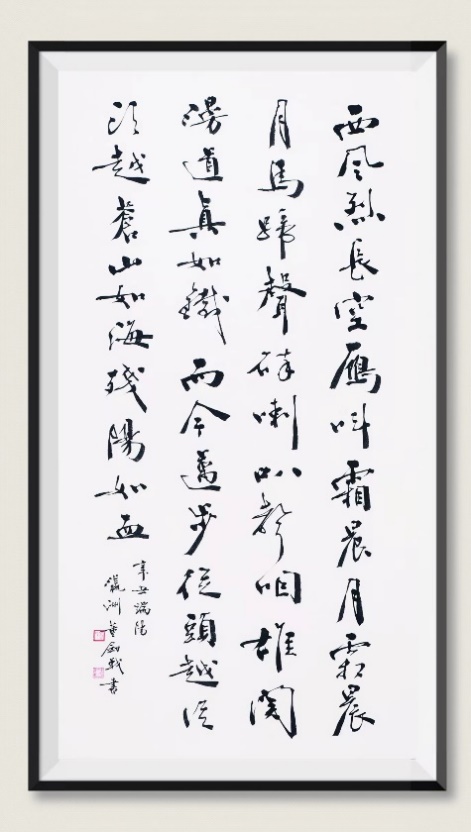 西风烈長空鴈叫霜晨月霜晨
月馬蹄聲碎喇叭聲咽雄関
漫道真如鐵而今邁步從頭越從
頭越蒼山如海殘陽如血
辛丑端陽
洲董劍书